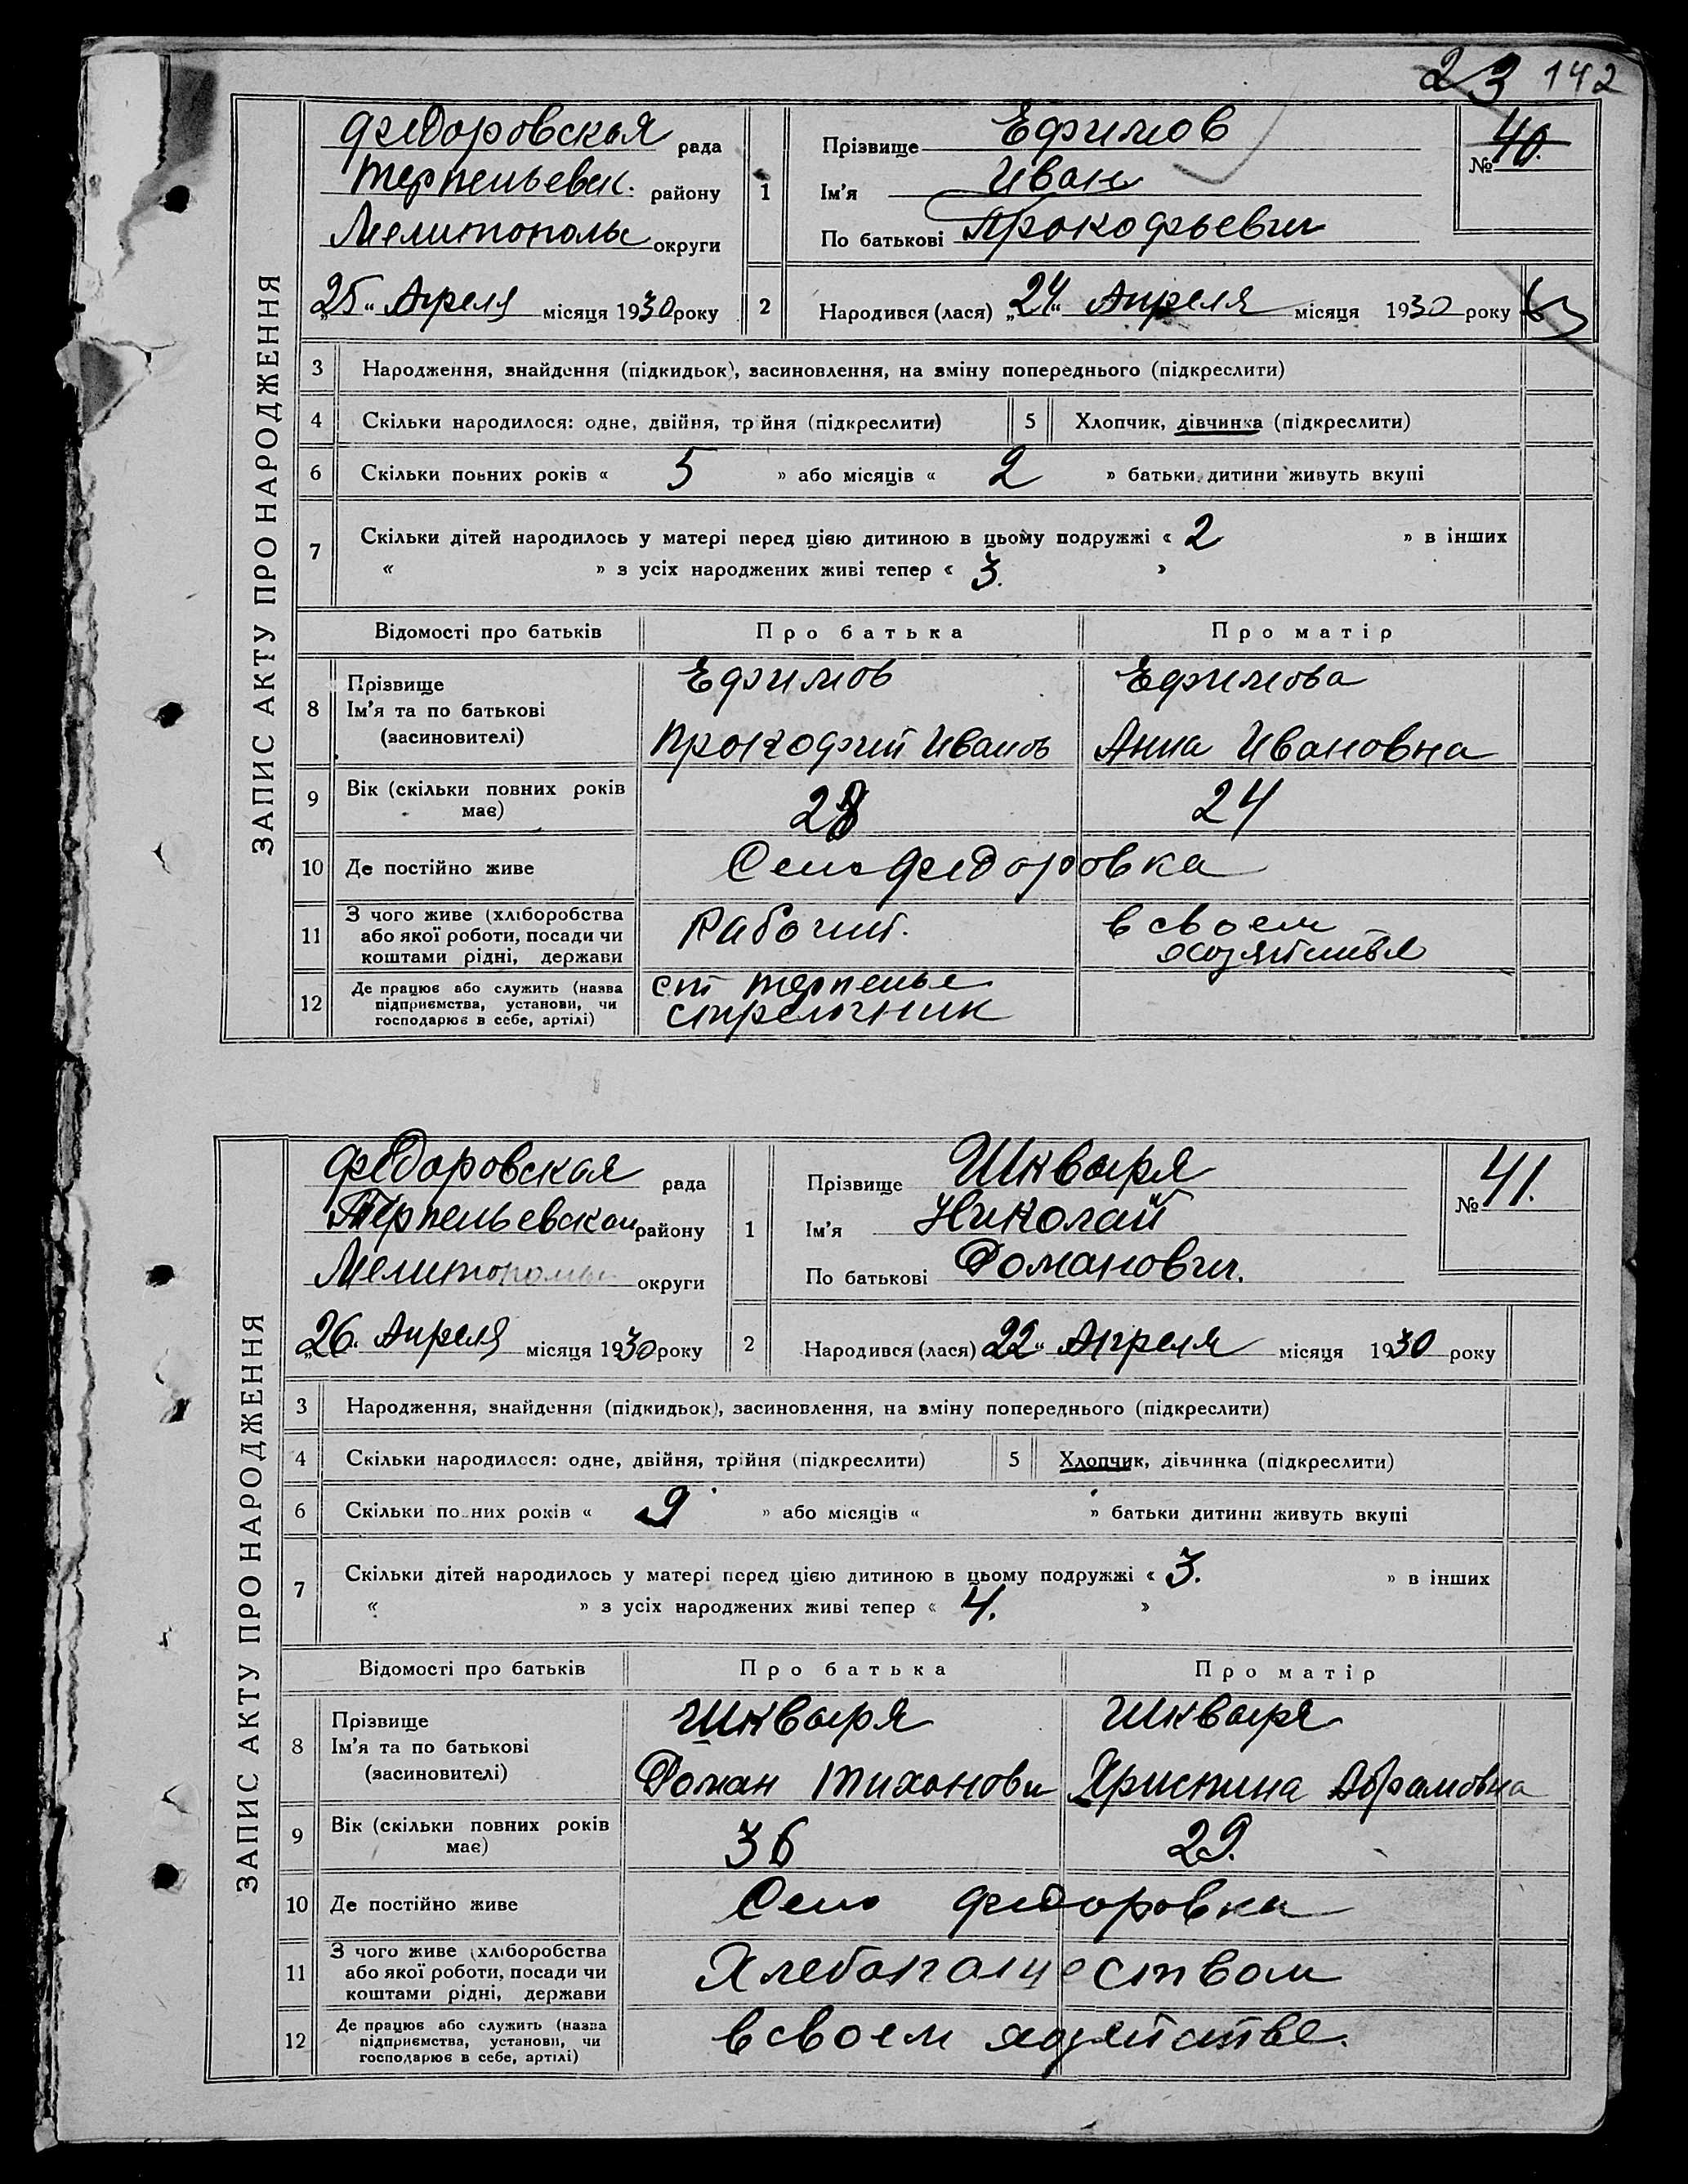 23 142
ЗАПИС АКТУ ПРО НАРОДЖЕННЯ
Федоровская рада
Терпеньевск. району
Мелитополь округи
„25“ Апреля місяця 1930 року
1 Прізвище Ефимов
Ім'я Иван
По батькові Прокофьевич
№ 40.
2 Народився (лася) „24“ Апреля місяця 1930 року
3 Народження, знайдення (підкидьок), засиновлення, на зміну попереднього (підкреслити)
4 Скільки народилося: одне, двійня, трійня (підкреслити) 5 Хлопчик, дівчинка (підкреслити)
6 Скільки повних років « 5 » або місяців « 2 » батьки дитини живуть вкупі
7 Скільки дітей народилось у матері перед цією дитиною в цьому подружжі « 2 » в інших
« » з усіх народжених живі тепер « 3. »
Відомості про батьків Про батька Про матір
8 Прізвище
Ім'я та по батькові
(засиновителі)
Ефимов
Прокофий Иванов
Ефимова
Анна Ивановна
9 Вік (скільки повних років
має)
28 24
10 Де постійно живе Село Федоровка
11 З чого живе (хліборобства
або якої роботи, посади чи
коштами рідні, держави
Рабочий.
в своем
хозяйстве
12 Де працює або служить (назва
підприємства, установи, чи
господарює в себе, артілі)
ст Терпенье
стрелочник
ЗАПИС АКТУ ПРО НАРОДЖЕННЯ
Федоровская рада
Терпеньевскаи району
Мелитополь округи
„26“ Апреля місяця 1930 року
1 Прізвище Шкваря
Ім'я Николай
По батькові Романович.
№ 41.
2 Народився (лася) 22“ Апреля місяця 1930 року
3 Народження, знайдення (підкидьок), засиновлення, на зміну попереднього (підкреслити)
4 Скільки народилося: одне, двійня, трійня (підкреслити) 5 Хлопчик, дівчинка (підкреслити)
6 Скільки повних років « 9 » або місяців « » батьки дитини живуть вкупі
7 Скільки дітей народилось у матері перед цією дитиною в цьому подружжі « 3. » в інших
« » з усіх народжених живі тепер « 4. »
Відомості про батьків Про батька Про матір
8 Прізвище
Ім'я та по батькові
(засиновителі)
Шкваря
Роман Тихонови
Шкваря
Христина Абрамовна
9 Вік (скільки повних років
має)
36 29.
10 Де постійно живе Село Федоровка
11 З чого живе (хліборобства
або якої роботи, посади чи
коштами рідні, держави
Хлебопашеством
12 Де працює або служить (назва
підприємства, установи, чи
господарює в себе, артілі)
в своем хозяйстве.